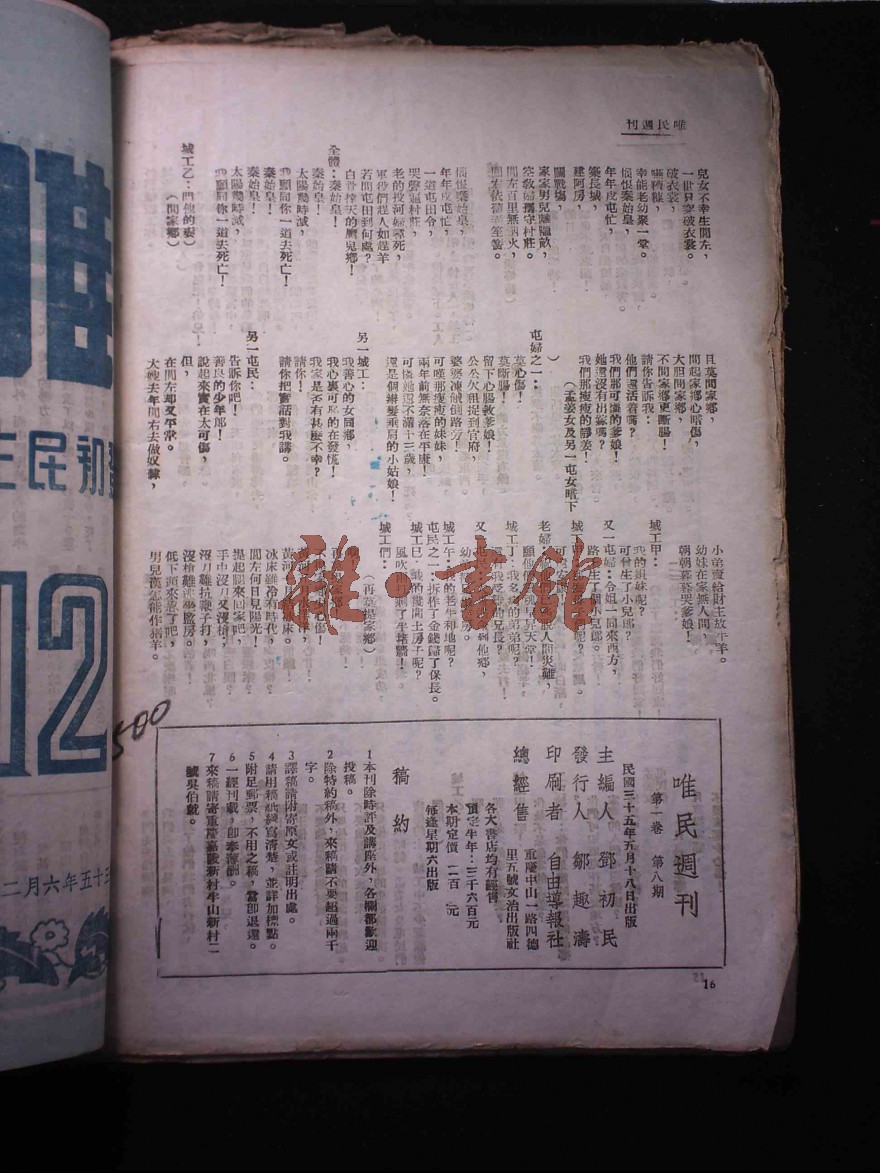 唯民週刊
兒女不幸生閭左，
一世只穿破衣裳。
破衣裳，
嚥糟糠，
幸能老幼聚一堂。
恨恨秦始皇，
年年戍屯忙，
築長城，
建阿房，
闢戰場，
家家男兒驅臨敵，
空教婦孺守村莊。
閭左百里無烟火，
恨恨秦始皇，
年年戍屯忙，
一道屯田令，
哭聲遍村莊，
老的投河婦尋死，
軍役們趕人如趕羊
若問屯田到何處？
白骨撐天的鷹鬼鄉！
全體：秦始皇！
秦始皇！
太陽幾時滅，
我願同你一道去死亡！
秦始皇！
秦始皇！
太陽幾時滅，
我願同你一道去死亡！
城工乙：問他的妻）
（問家鄉）
且莫問家鄉，
問起家鄉心暗傷，
大胆問家鄉，
不問家鄉更斷腸！
請你告訴我：
他們還活着嗎？
我們那可憐的爹娘！
她還沒有出嫁嗎？
我們那瘦瘦的靜姜！
（孟姜女及另一屯女暗下
）
屯婦之一：
莫心傷！
莫斷腸！
留下心腸救爹娘！
公公欠租捉到官府，
婆婆凍餓倒路旁！
可嘆那瘦瘦的妹妹，
兩年前無奈落在平康！
可憐她還不滿十三歲，
還是個辮髮垂肩的小姑娘！
另一城工：
我善心的女同鄉，
我心裏可怕的在發慌！
我家是否有甚麽不幸？
請你！
請你把實話對我講。
另一屯民：
告訴你吧！
善良的少年郎！
說起來實在太可傷，
但，
在閭左却又平常。
大嫂去年閭右去做奴隸，
小弟賣給財主放牛羊。
幼妹在家無人問，
朝朝暮暮哭爹娘！
城工甲：
我的姐妹呢？
可曾生了小兒郎？
又一屯婦：令姐一回來西方，
路上生了個小兒郎。
老婦：
城工丁：我多病的弟弟呢？
城工午：我的老牛和地呢？
屯民之一：拆作了金錢歸了保長。
城工巳：我的幾間土房子呢？
風吹雨打剩了半堵牆！
城工們：
（再莫提家鄉）
冰床雖冷有時代，
閭左何日見陽光！
提起腿來回家吧，
手中沒刀又沒槍，
沒刀難抗鞭子打，
沒槍難逃監房。
低下頭來蹲了吧，
男兒漢怎能作猪羊。
唯民週刊
第一卷　第八期
民國三十五年五月十八日出版
主編人　鄧初民
發行人　鄒趣濤
印刷者　自由導報社
重慶中山一路四德
里五號文治出版社
總經售
各大書店均有經售
預定半年：三千六百元
本期定價　二百　元
每逢星期六出版
稿約
1本刊除時評及講座外，各欄都歡迎
投稿。
2除特約稿外，來稿請不要超過兩千
字。
3譯稿請附寄原文或註明出處。
4請用稿紙繕寫清楚，並詳加標點。
5附足郵票，不用之稿，當即退還。
6一經刊載，即奉薄酬。
7來稿請寄重慶嘉陵新村半山新村二
號吳伯戴。
16
500
雜·書館
唯
主民初
12
三十五年六月二